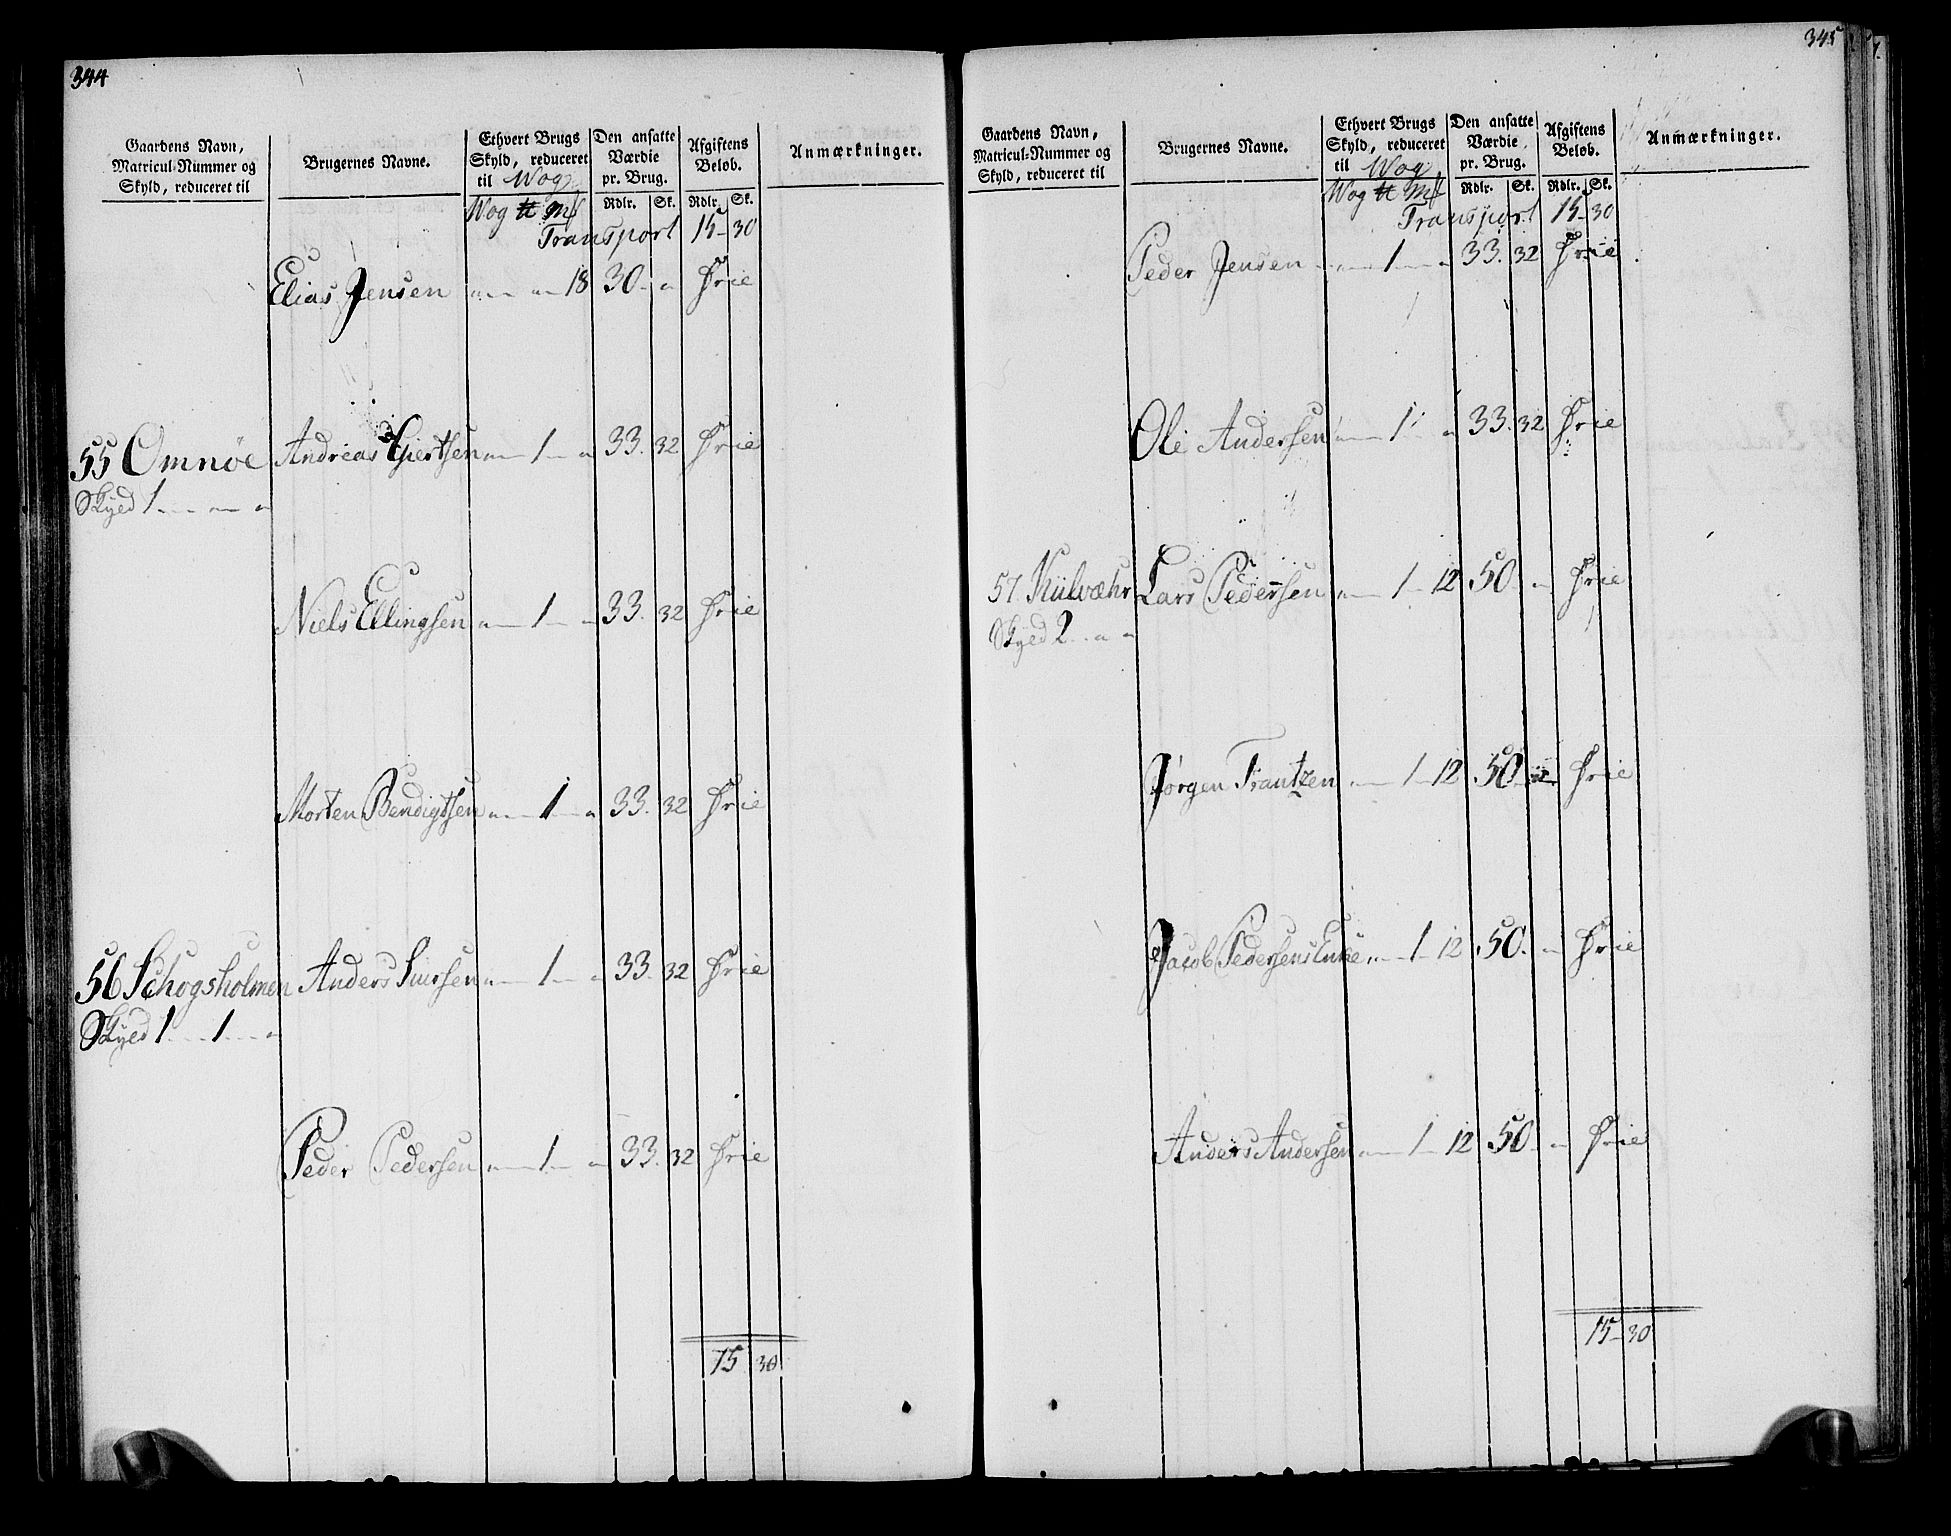 344
Gaardens Navn, Matricul-Nummer og Skyld, reduceret til
Brugernes Navne.
Ethvert Brugs Skyld, reduceret til Wog
Den ansatte Værdie pr. Brug.
Afgiftens Beløb.
Anmærkninger.
Wog ℔ Mk Rdlr. Sk. Rdlr. Sk.
Transport 15 - 30
Elias Jensen 18 30 Frie
55 Omnøe Andreas Giertsen 1 33. 32 Frie
Skyld 1
Niels Ellingsen 1 33. 32 Frie
Morten Bendigtsen 1 33. 32 Frie
56 Schogsholmen Anders Siursen 1 33. 32 Frie
Skyld 1 1
Peder Pedersen 1 33. 32 Frie
15 30
345
Gaardens Navn, Matricul-Nummer og Skyld, reduceret til
Brugernes Navne.
Ethvert Brugs Skyld, reduceret til Wog
Den ansatte Værdie pr. Brug.
Afgiftens Beløb.
Anmærkninger.
Wog ℔ Mk Rdlr. Sk. Rdlr. Sk.
Transport 15 - 30
Peder Jensen 1 33. 32 Frie
Ole Andersen 1 33. 32 Frie
57. Kulvæhr Lars Pedersen 1 12 50 Frie
Skyld 2
Jørgen Frantzen 1 12 50 Frie
Jacob Pedersens Enke 1 12 50. Frie
Anders Andersen 1 12 50 Frie
15 - 30